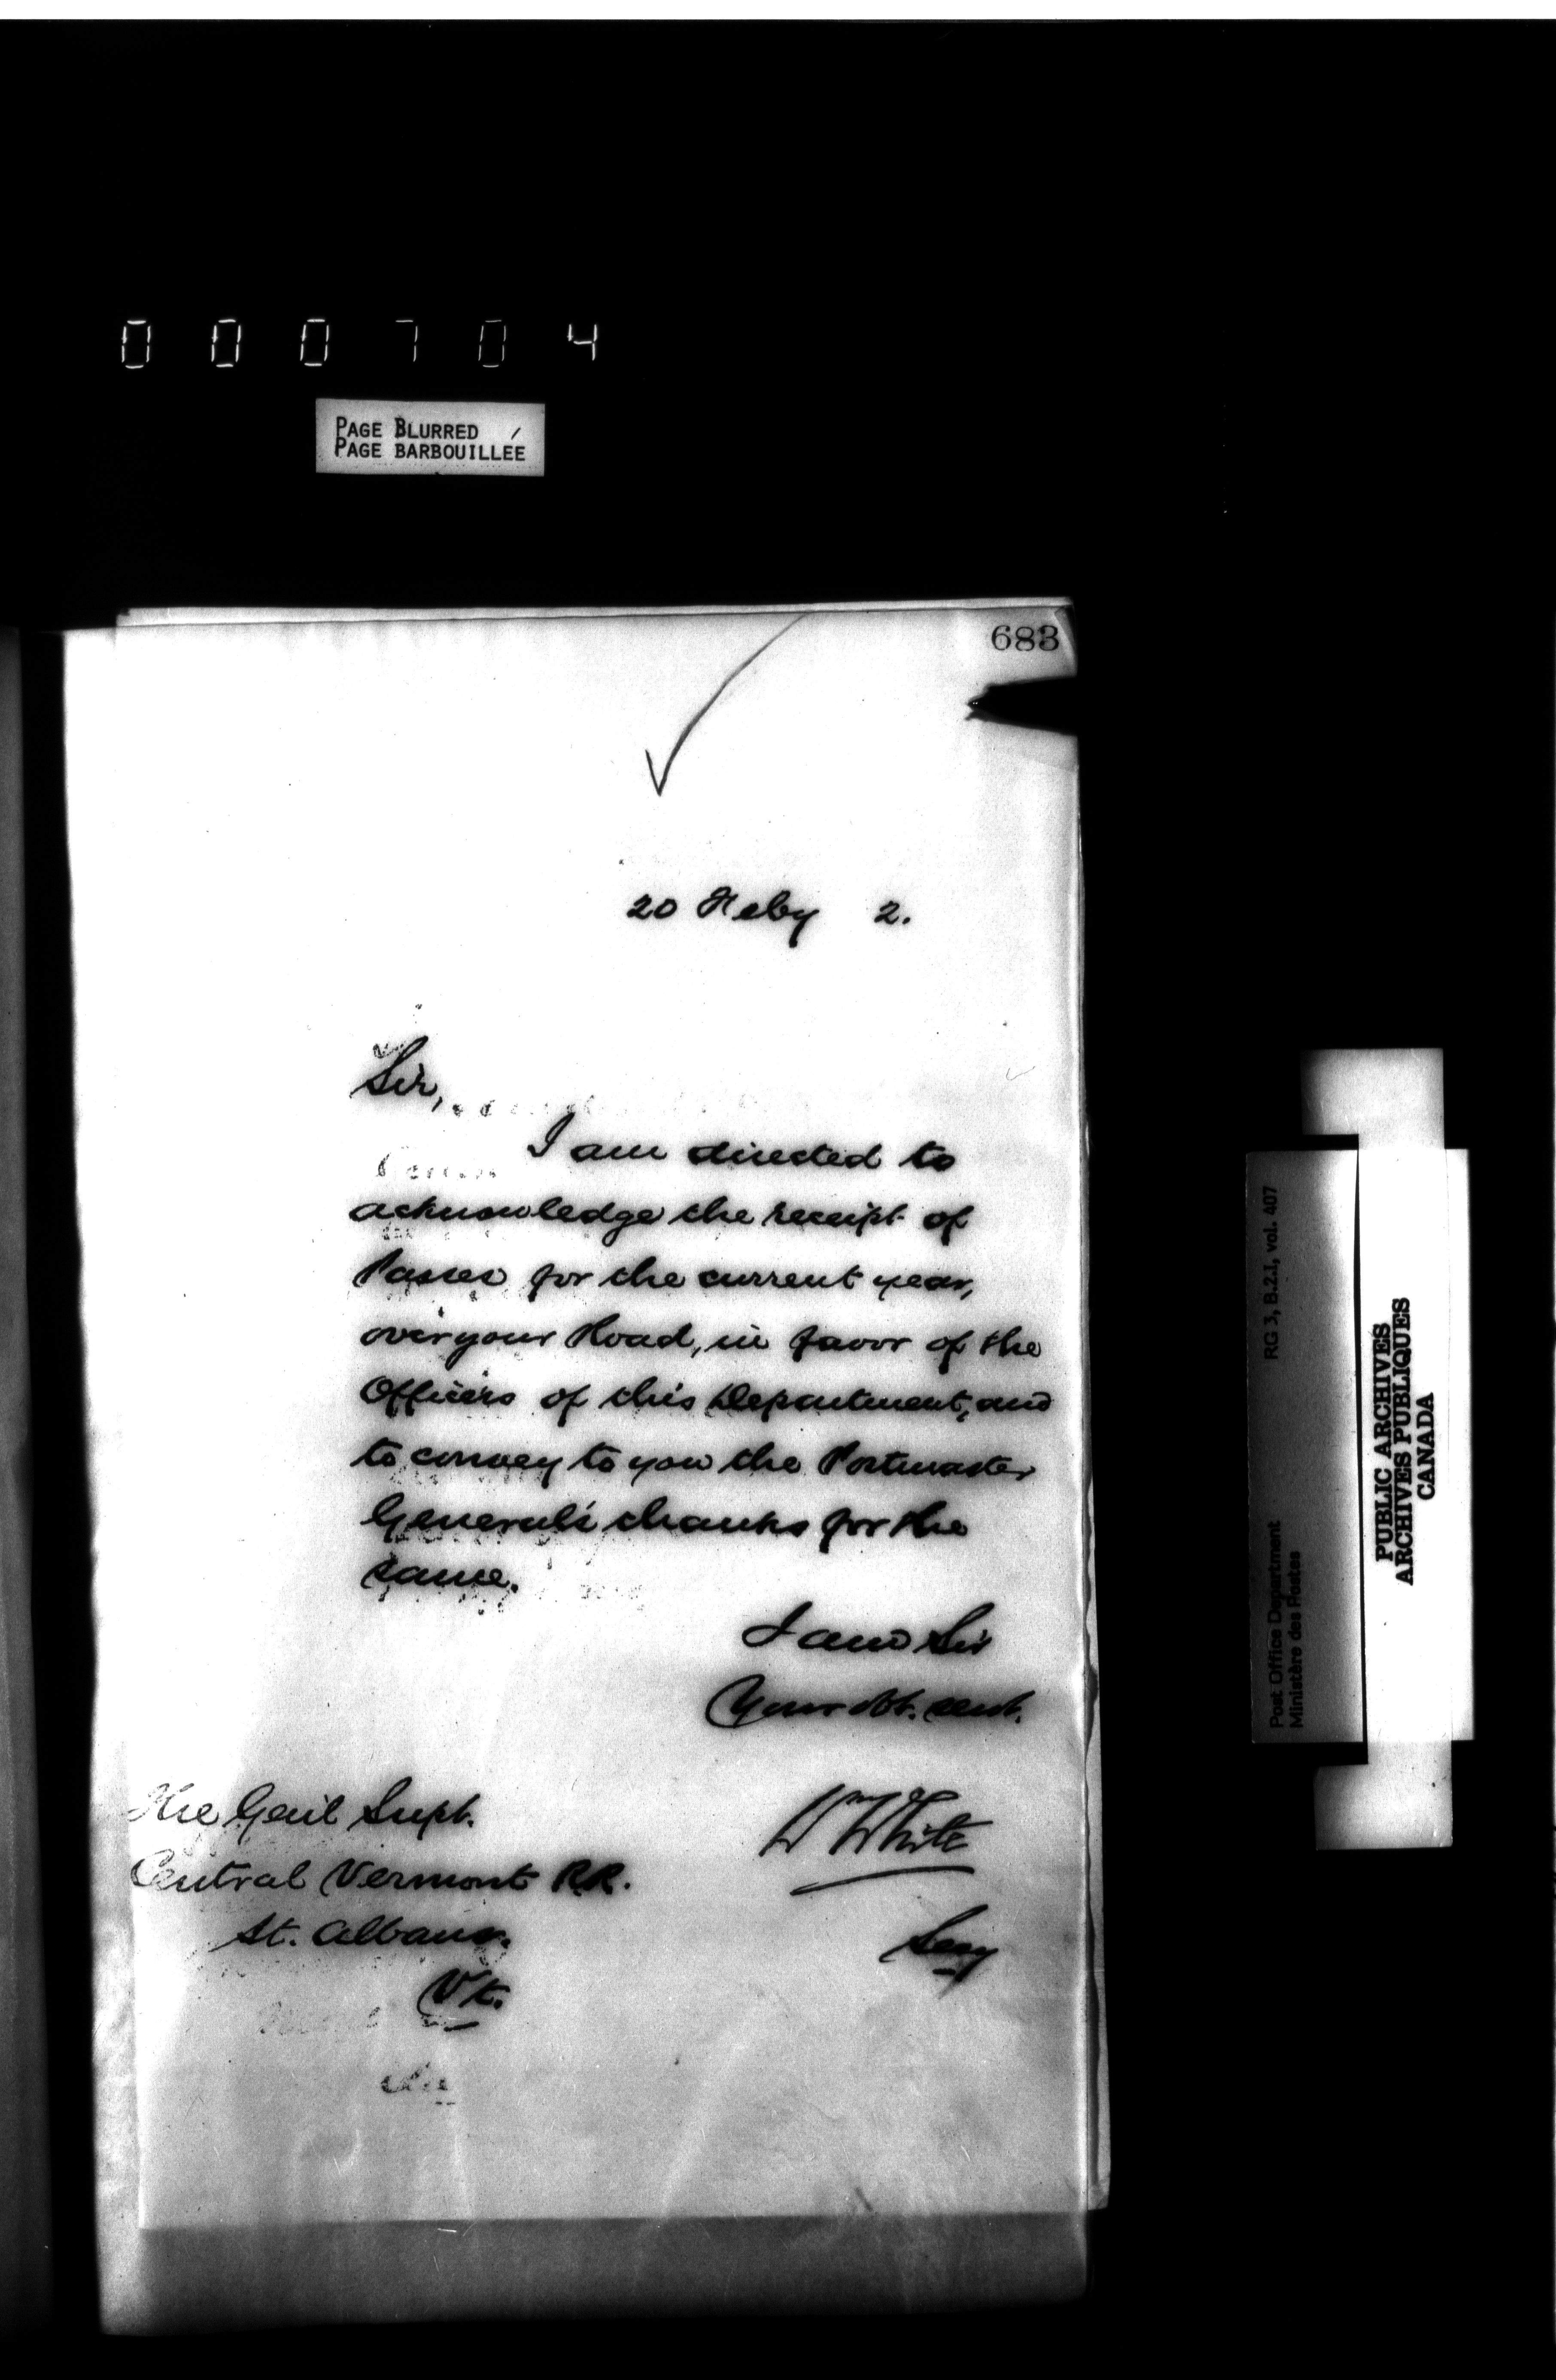 000704
PAGE BLURRED
PAGE BARBOUILLÉE
683
20 Feby 2.
Sir,
I am directed to
acknowledge the receipt of
Passes for the current year,
over your Road, in favor of the
Officers of this Department, and
to convey to you the Postmaster
General's thanks for the
same.
I am Sir
Your obt. servt.
Wm White
Secy
The Genl Supt.
Central Vermont RR.
St. Albans.
Vt.
RG 3, B.2.I, vol. 407
Post Office Department
Ministère des Postes
PUBLIC ARCHIVES
ARCHIVES PUBLIQUES
CANADA